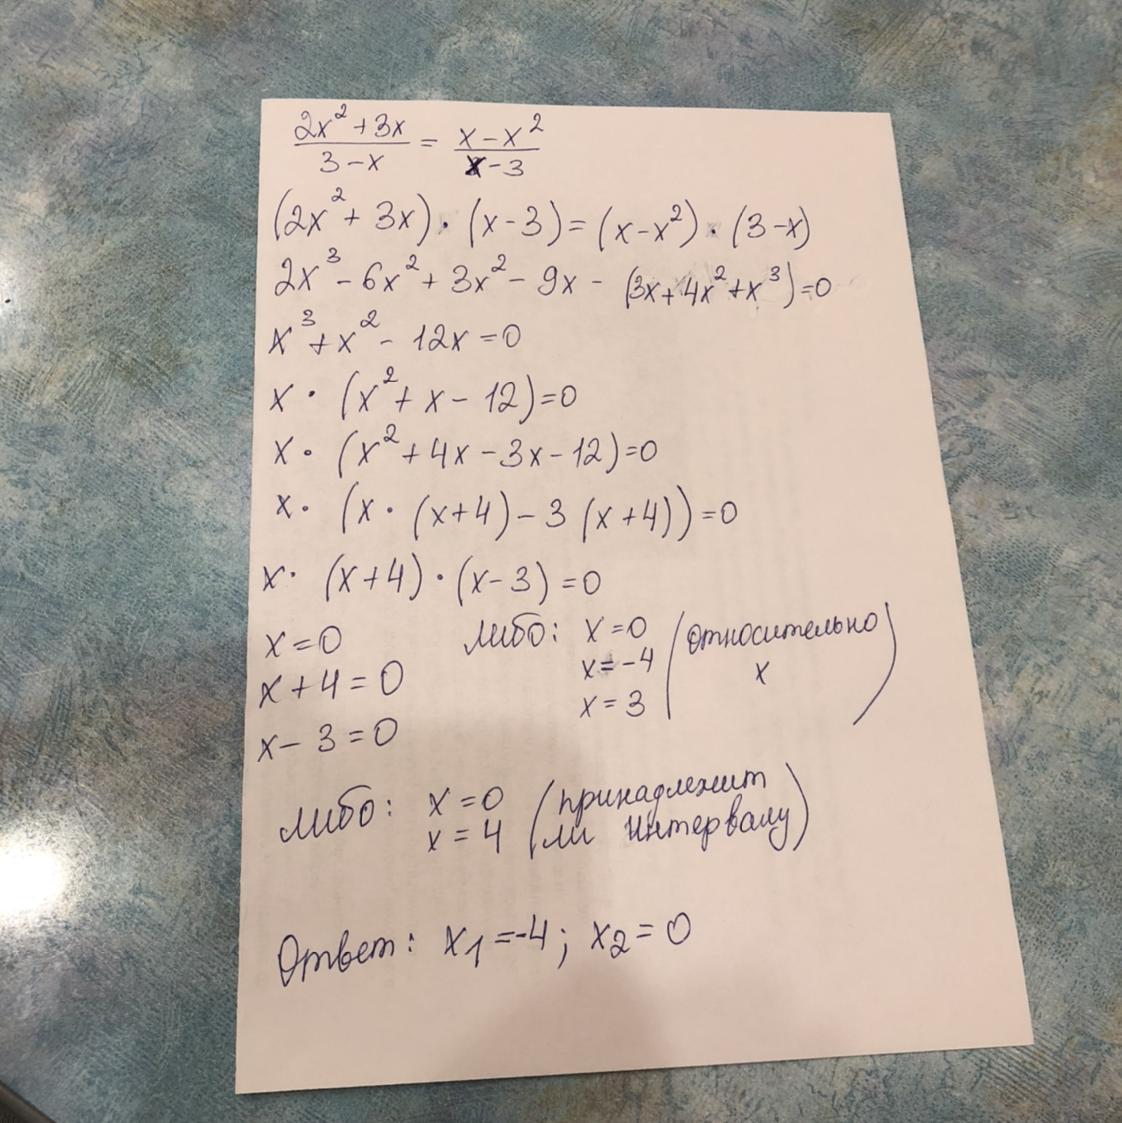 (2x² + 3x)/(3 - x) = (x - x²)/(x - 3)
(2x² + 3x) · (x - 3) = (x - x²) · (3 - x)
2x³ - 6x² + 3x² - 9x - (3x + 4x² + x³) = 0
x³ + x² - 12x = 0
x · (x² + x - 12) = 0
x · (x² + 4x - 3x - 12) = 0
x · (x · (x + 4) - 3 (x + 4)) = 0
x · (x + 4) · (x - 3) = 0
x = 0
x + 4 = 0
x - 3 = 0
либо: x = 0
x = -4
x = 3
(относительно
x)
либо: x = 0
x = 4
(принадлежит
ли интервалу)
Ответ: x₁ = -4; x₂ = 0